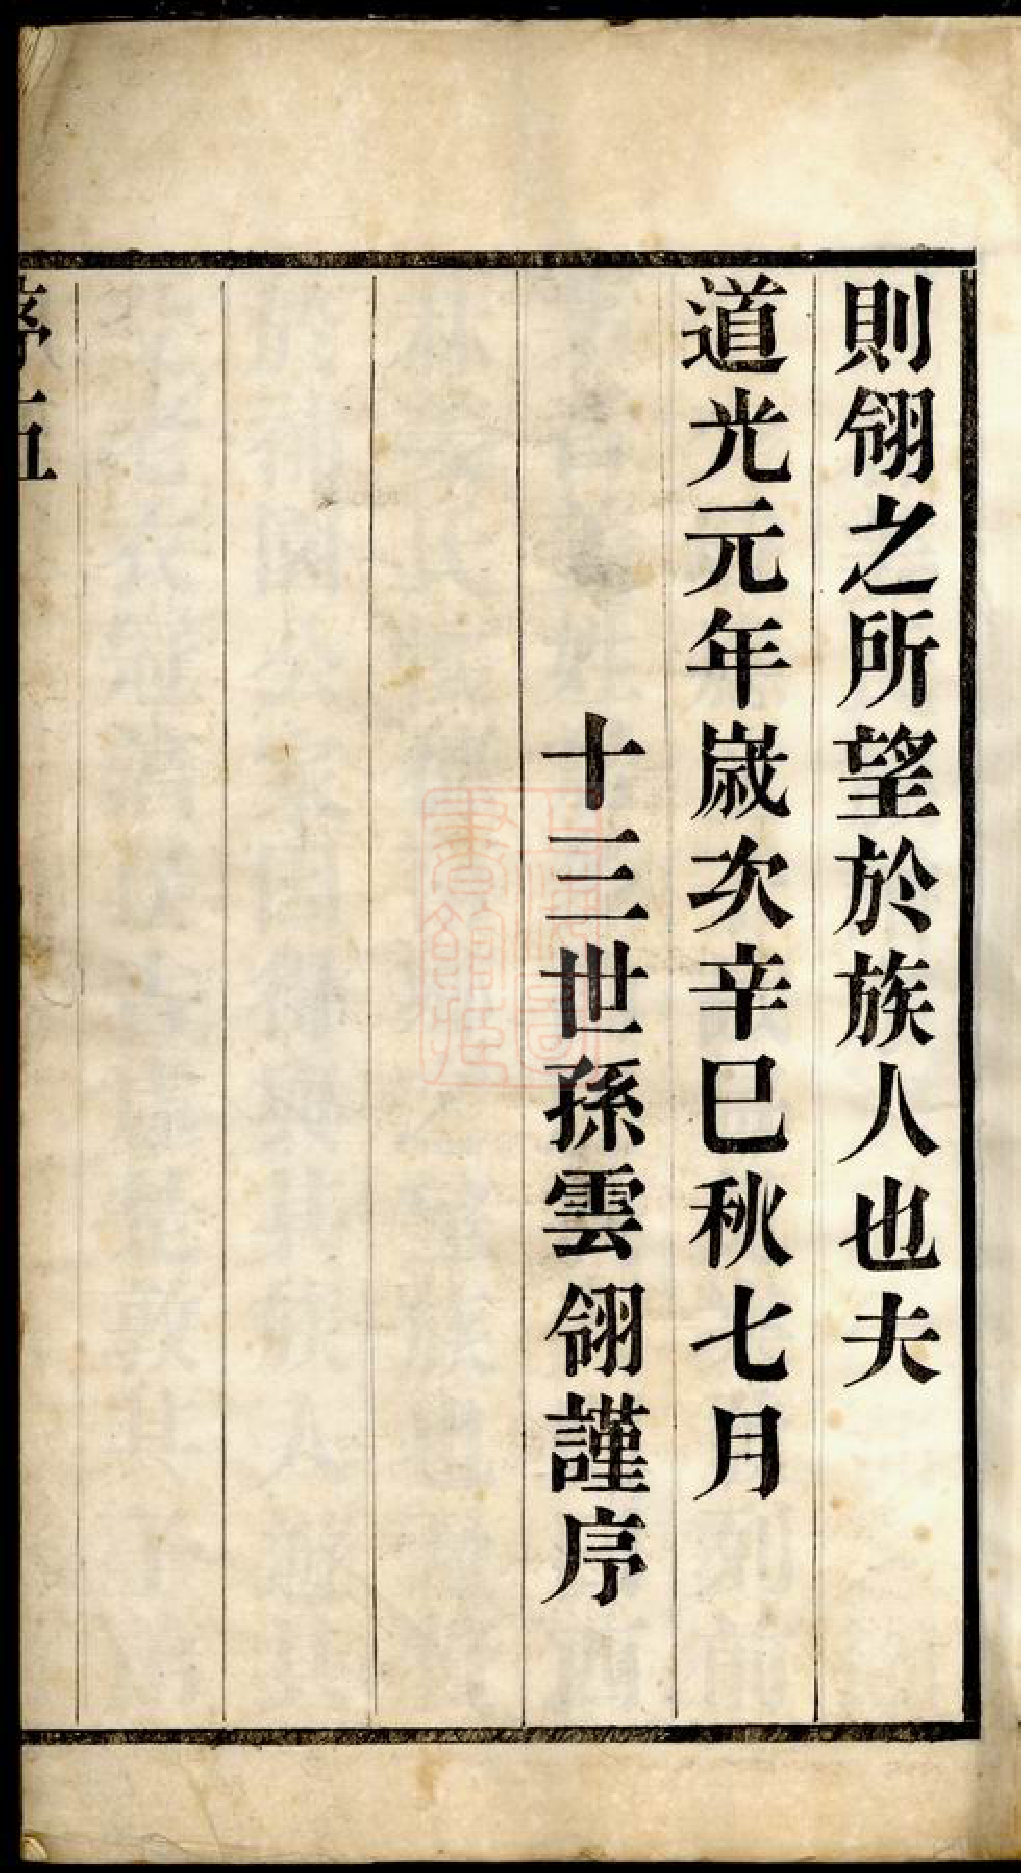 則翎之所望於族人也夫
道光元年歲次辛巳秋七月
十三世孫雲翎謹序
序五